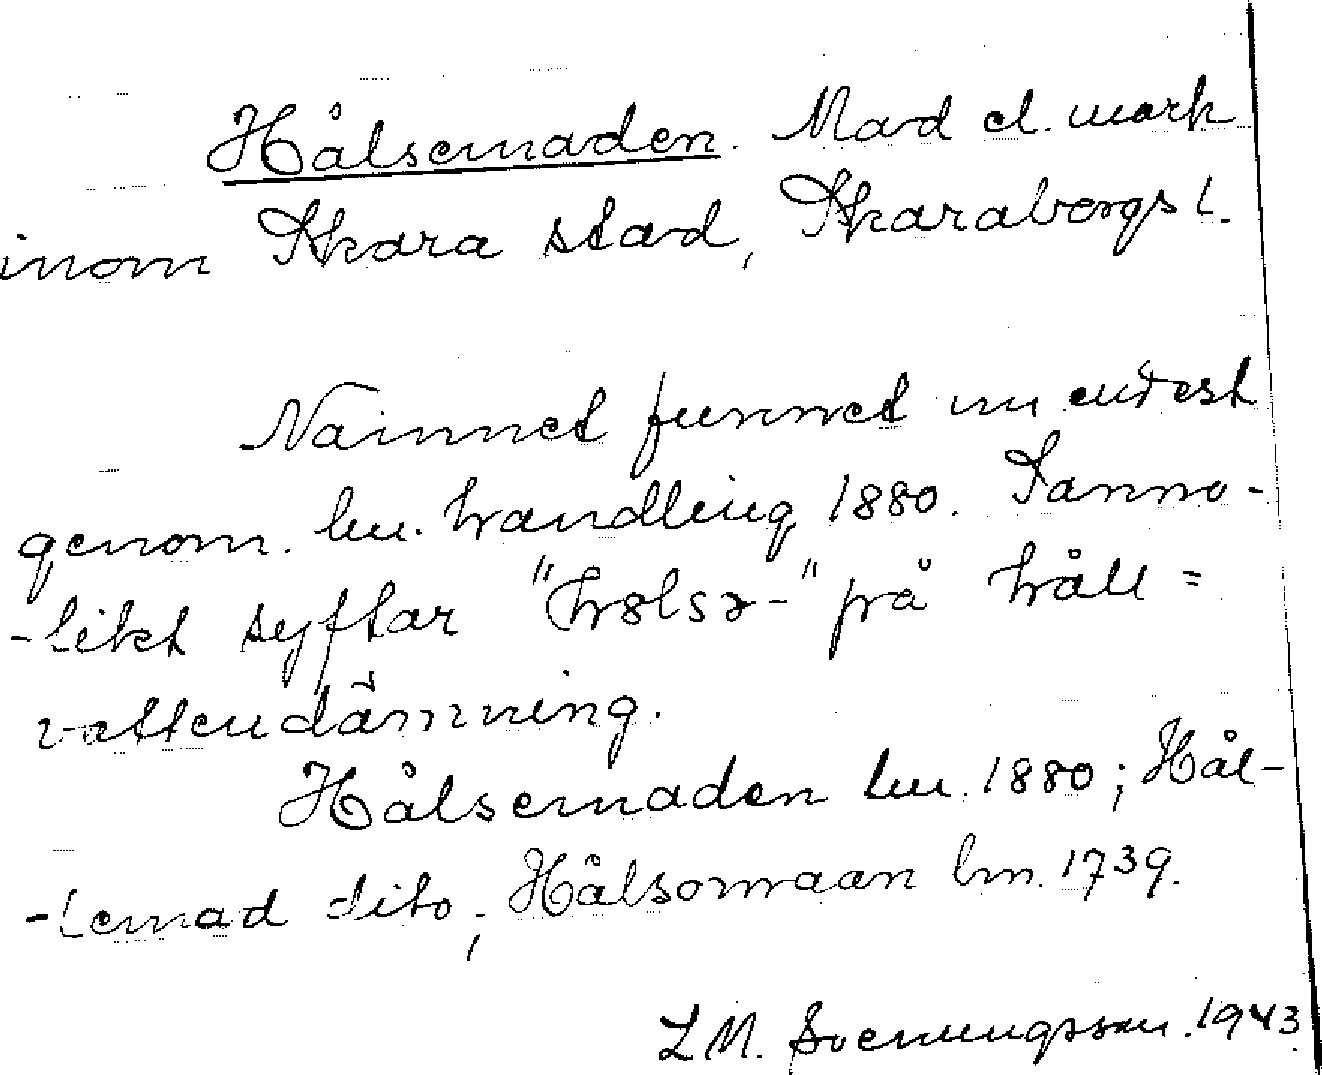 Hålsemaden. Mad el. mark
inom Skara stad, Skaraborgs l.
Namnet funnet nu endast
genom lm. handling 1880. Sanno-
-likt syftar "hålsə-" på håll =
vattendämning.
Hålsemaden lm. 1880; Hål-
-lemad dito; Hålsomaan lm. 1739.
L M. Svenungsson. 1943